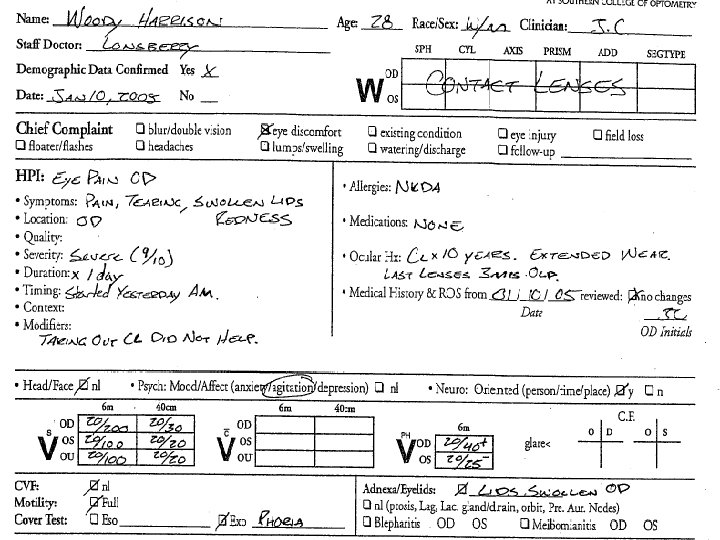 AT SOUTHERN COLLEGE OF OPTOMETRY
Name: WOODY HARRISON Age: 28 Race/Sex: W/m Clinician: J.C
Staff Doctor: LONSBERRY
SPH CYL AXIS PRISM ADD SEGTYPE
Demographic Data Confirmed Yes X
W OD OS CONTACT LENSES
Date: JAN 10, 2005 No
Chief Complaint ☐ blur/double vision ☒ eye discomfort ☐ existing condition ☐ eye injury ☐ field loss
☐ floater/flashes ☐ headaches ☐ lumps/swelling ☐ watering/discharge ☐ follow-up
HPI: EYE PAIN OD
• Symptoms: PAIN, TEARING, SWOLLEN LIDS
• Location: OD REDNESS
• Quality:
• Severity: SEVERE (9/10)
• Duration: x 1 day
• Timing: Started YESTERDAY AM.
• Context:
• Modifiers:
TAKING OUT CL DID NOT HELP.
• Allergies: NKDA
• Medications: NONE
• Ocular Hx: CL x 10 YEARS. EXTENDED WEAR.
LAST LENSES 3 MTS. OLD.
• Medical History & ROS from 01/10/05 reviewed: ☒ no changes
Date
OD Initials
• Head/Face ☑ nl • Psych: Mood/Affect (anxiety/agitation/depression) ☐ nl • Neuro: Oriented (person/time/place) ☑ y ☐ n
6m 40cm
S V OD 20/200 20/30
OS 20/100 20/20
OU 20/100 20/20
6m 40cm
C V OD
OS
OU
6m
PH V OD 20/40+
OS 20/25-
glare<
C.F.
O D O S
CVF: ☑ nl
Motility: ☑ Full
Cover Test: ☐ Eso ☑ Exo PHORIA
Adnexa/Eyelids: ☑ LIDS SWOLLEN OD
☐ nl (ptosis, Lag, Lac. gland/drain, orbit, Pre. Aur. Nodes)
☐ Blepharitis OD OS ☐ Meibomianitis OD OS